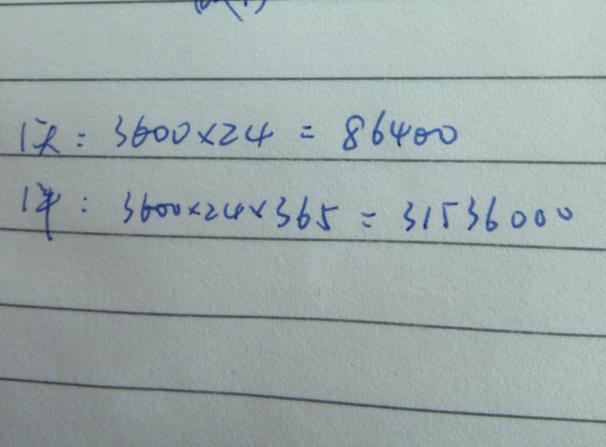 1天: 3600×24 = 86400
1年: 3600×24×365 = 31536000